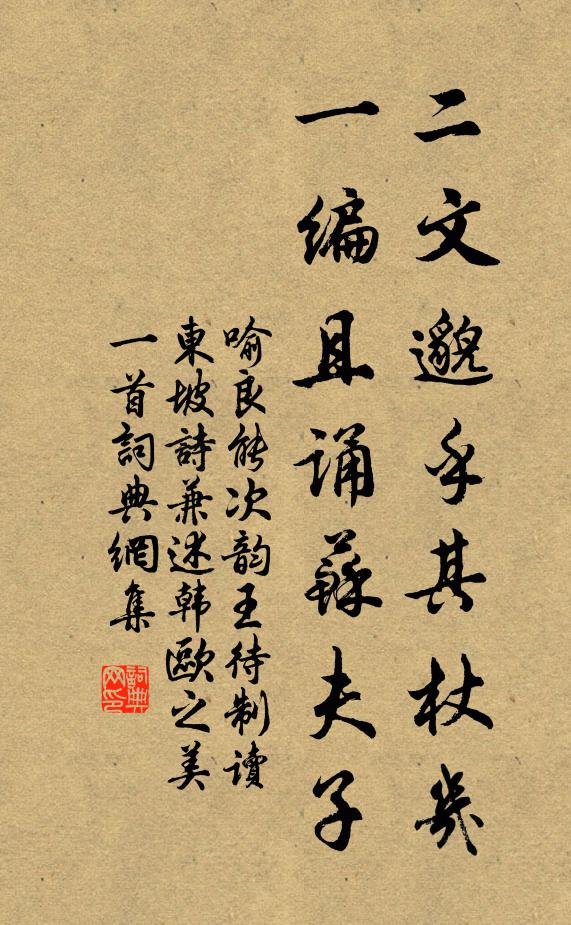 二文邈乎其杖幾
一编且诵蘇夫子
喻良能次韵王待制读
東坡詩兼述韩歐之美
一首詞典網集
詞典网印